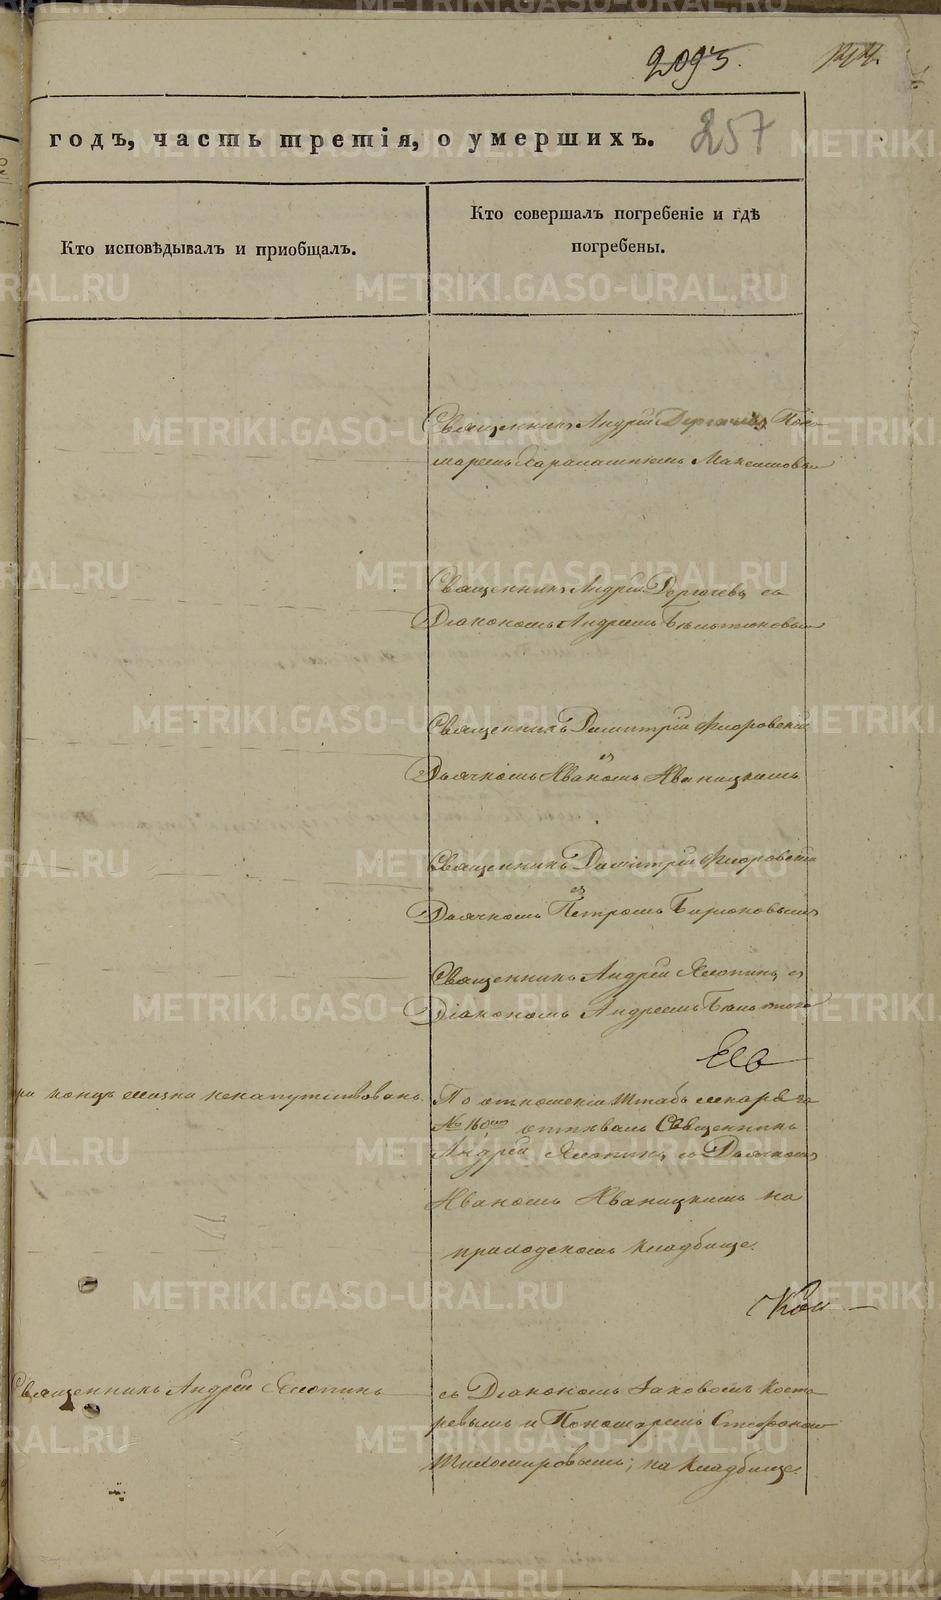 2095.
257
годъ, часть третія, о умершихъ.
Кто исповѣдывалъ и приобщалъ.
Кто совершалъ погребеніе и гдѣ
погребены.
Священникъ Андрей Дергачевъ Поно-
маремъ Харалампіемъ Максимовы
Священникъ Андрей Дергачевъ съ
Діакономъ Андреемъ
Священникъ Димитрій Флоровскій
съ
Дьячкомъ Иваномъ Иваницкимъ
Священникъ Димитрій Флоровскій
съ
Дьячкомъ Петромъ Бирюковымъ
Священникъ Андрей Яхонтинъ съ
Діакономъ Андреемъ
ри концѣ жизни ненапутствованъ.
По отношенію Штабъ лекаря за
№ 160 отпѣвалъ Священникъ
Андрей съ Дьячкомъ
Иваномъ Иваницкимъ на
приходскомъ кладбище.
Священникъ Андрей
съ Діакономъ Іаковомъ Коста-
ревымъ и Пономаремъ Стефаном
Тихомировымъ; на кладбище.
METRIKI.GASO-URAL.RU